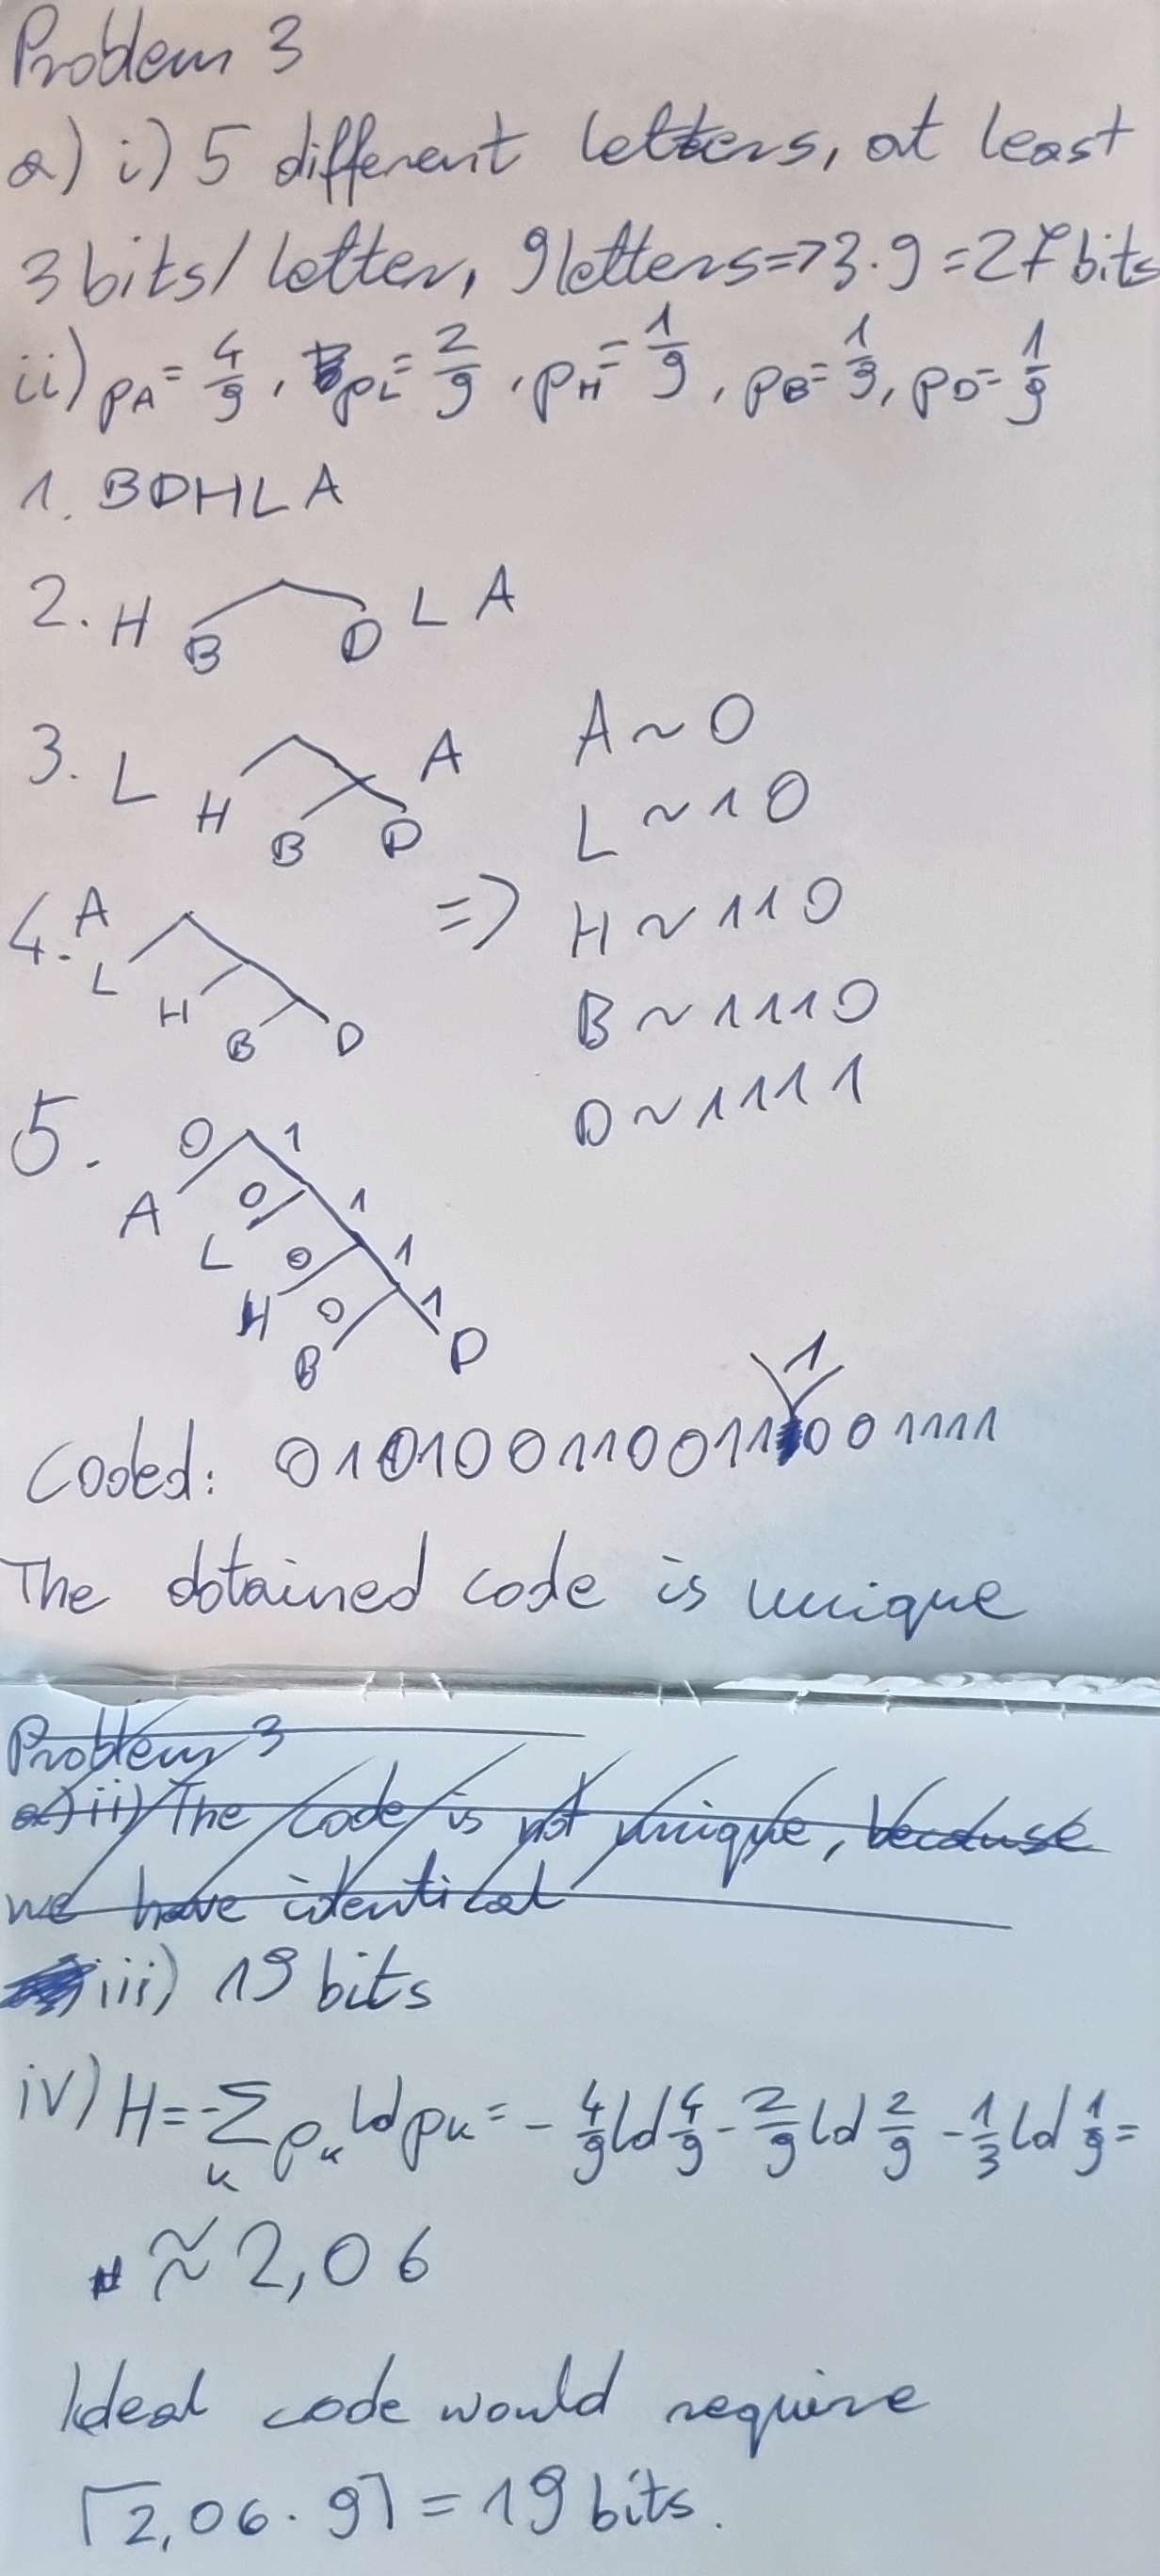 Problem 3
a) i) 5 different letters, at least
3 bits/letter, 9 letters=>3·9=27 bits
ii) pA = 4/9, pL = 2/9, pH = 1/9, pB = 1/9, pD = 1/9
1. BDHLA
2. H B D L A
3. L H B D A
A ~ 0
L ~ 10
4. A L H B D
=> H ~ 110
B ~ 1110
D ~ 1111
5. 0 1
A 0 1
L 0 1
H 0 1
B D
1
Coded: 0101001100111001111
The obtained code is unique
Problem 3
a) ii) The code is not unique, because
we have identical
iii) 19 bits
iv) H = -∑k pk ld pk = - 4/9 ld 4/9 - 2/9 ld 2/9 - 1/3 ld 1/9 =
≈ 2,06
Ideal code would require
⌈2,06·9⌉ = 19 bits.